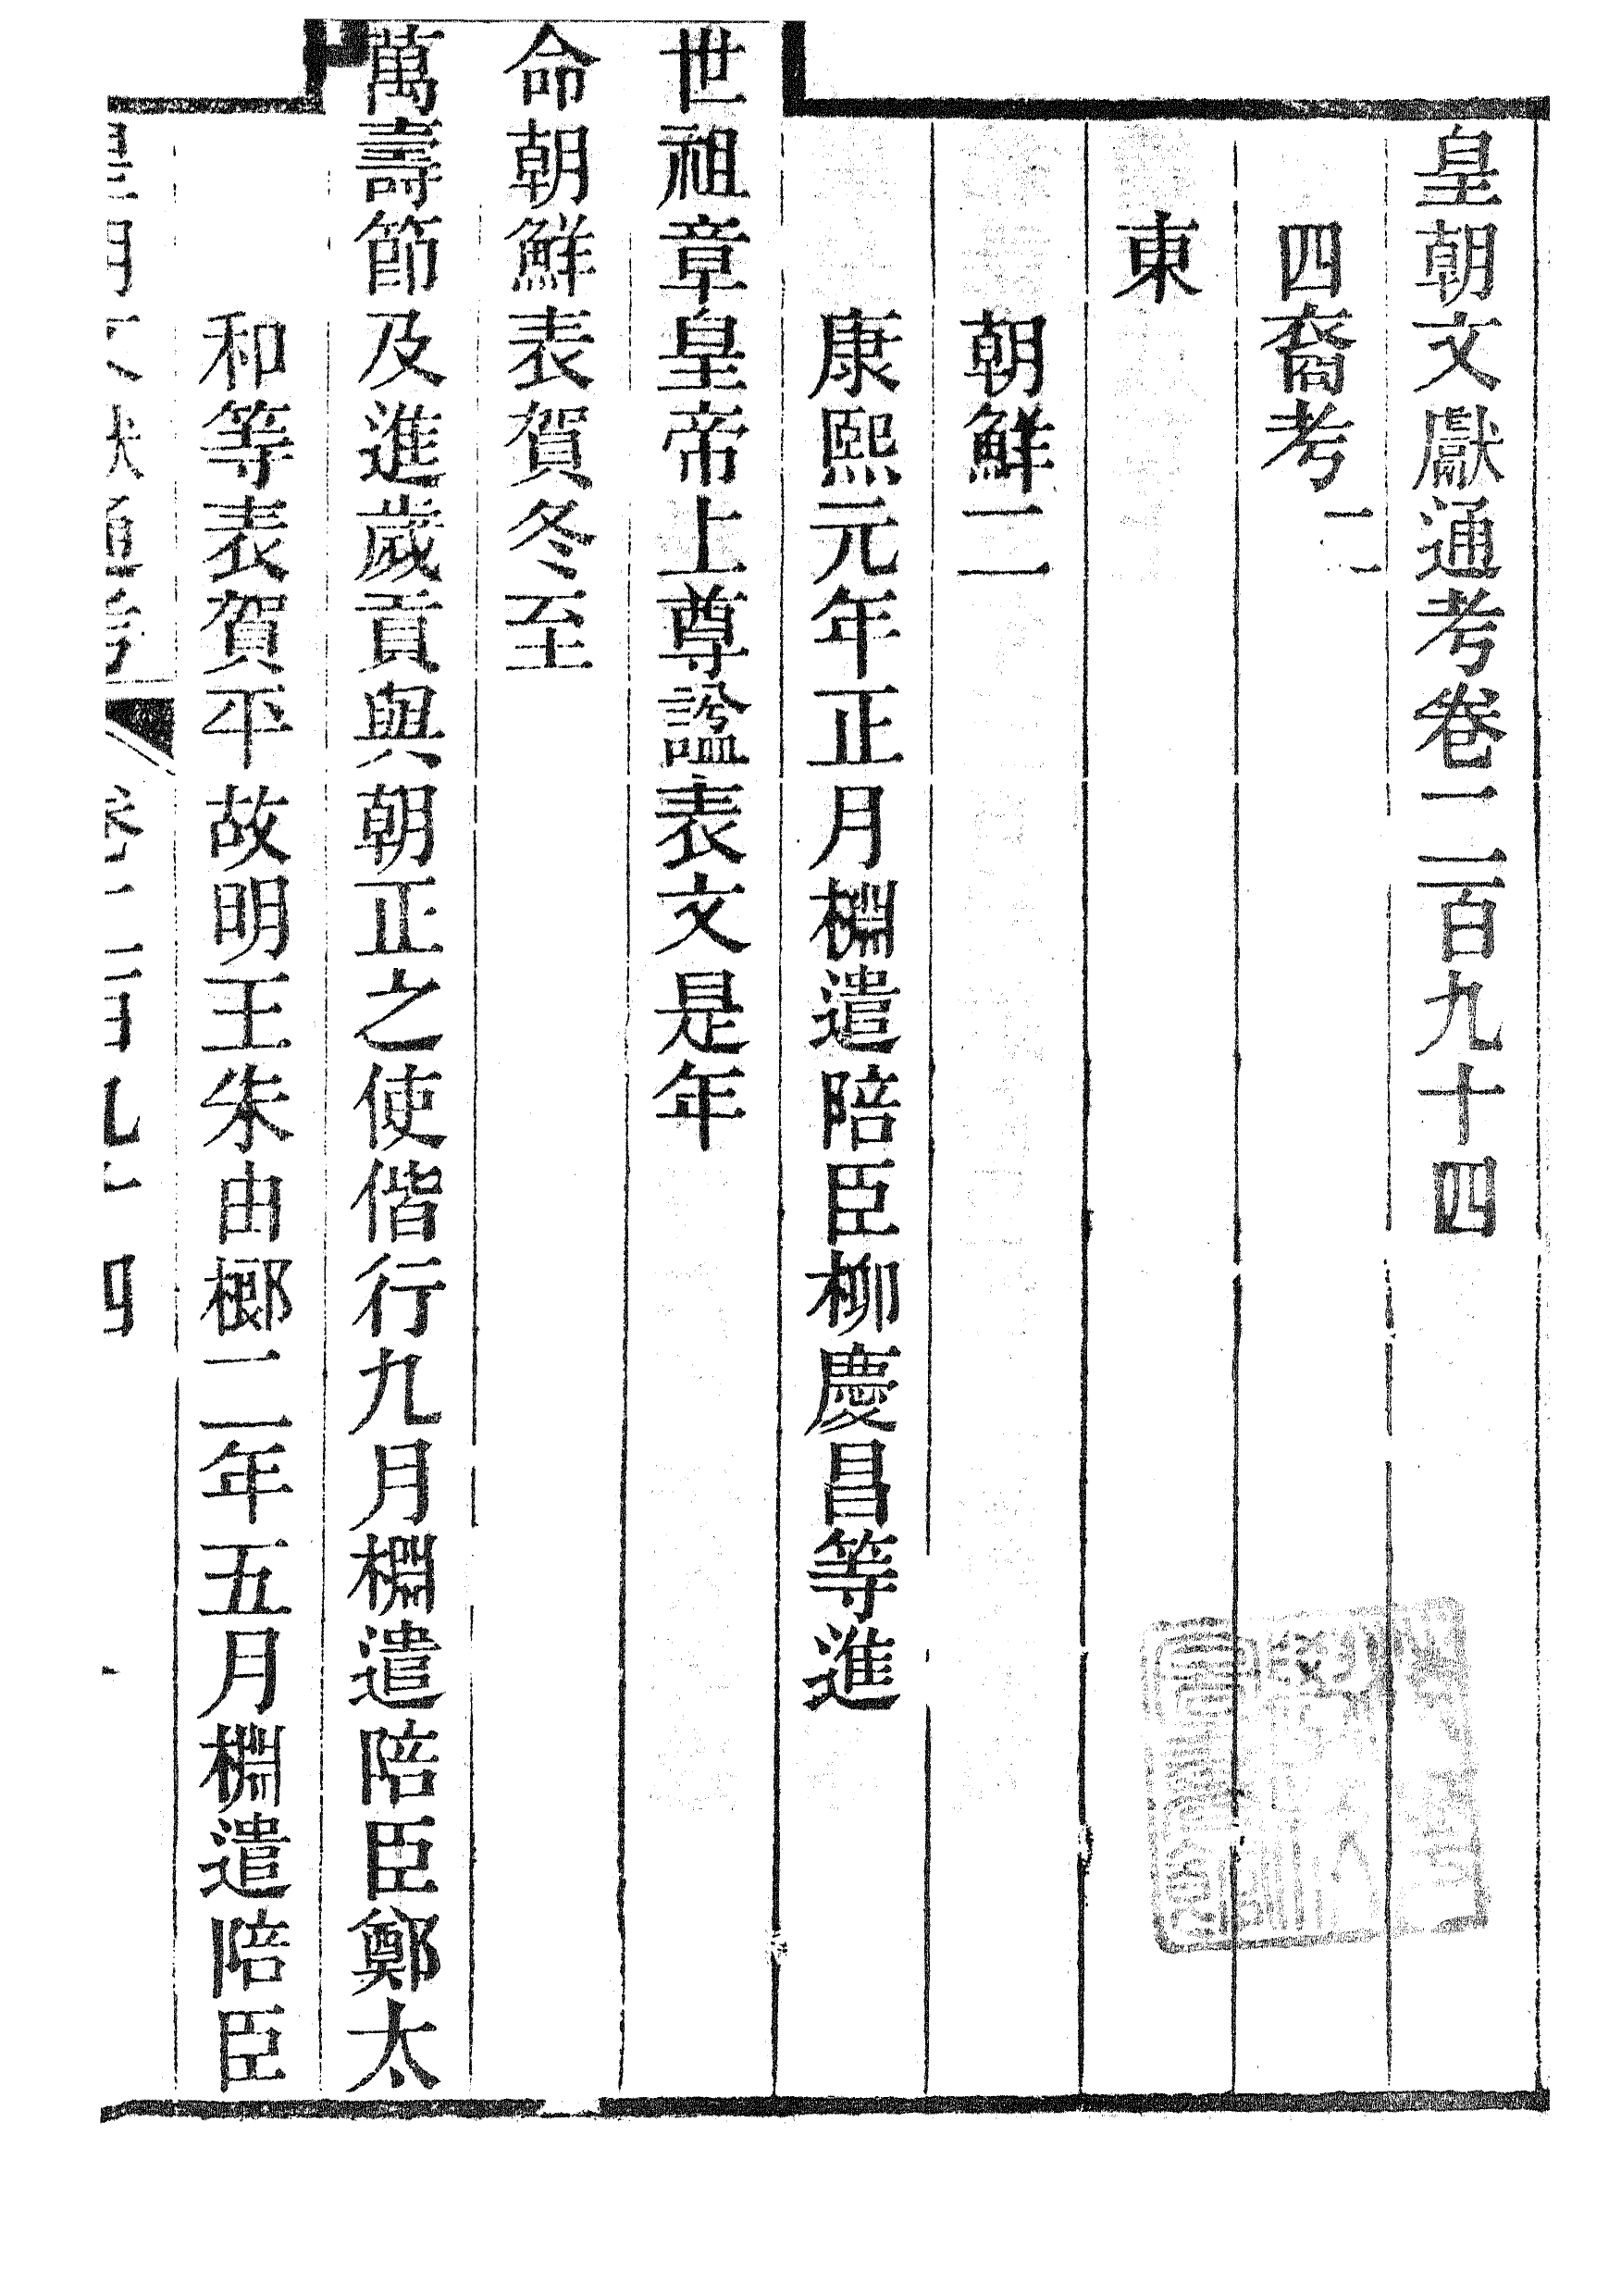 皇朝文獻通考卷二百九十四
四裔考二
東
朝鮮二
康熙元年正月棩遣陪臣柳慶昌等進
世祖章皇帝上尊諡表文是年
命朝鮮表賀冬至
萬壽節及進歲貢與朝正之使偕行九月棩遣陪臣鄭太
和等表賀平故明王朱由榔二年五月棩遣陪臣
皇朝文獻通考 卷二百九十四